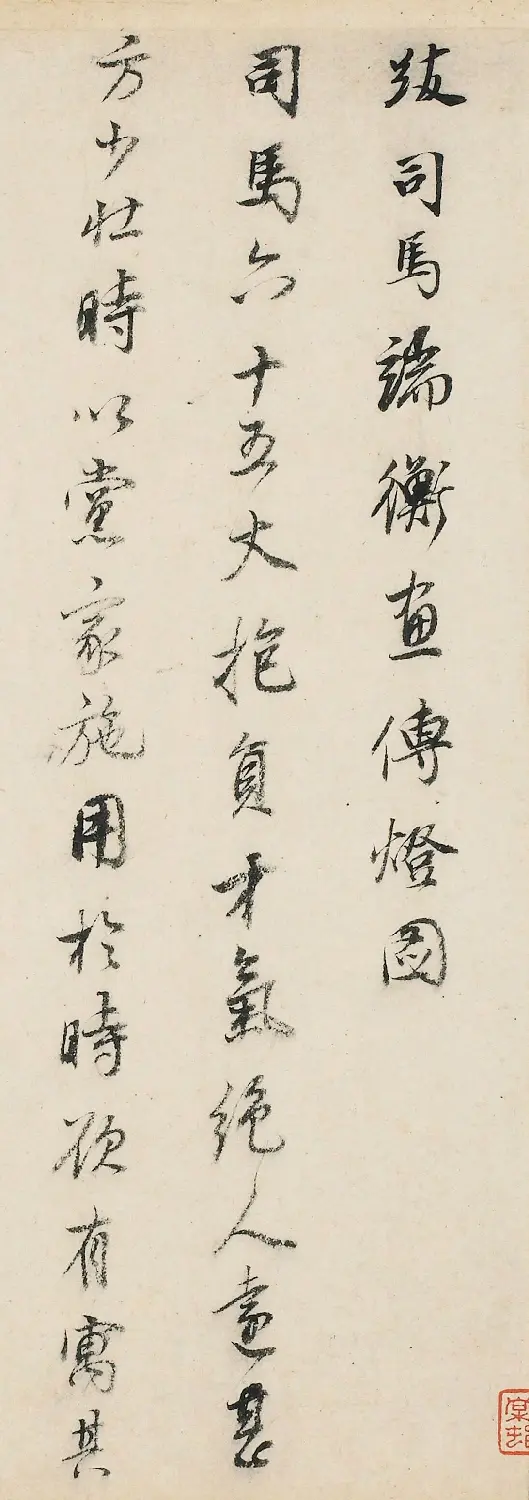 跋司馬端衡畫傳燈圖
司馬六十五丈抱負才氣絕人遠甚
方少壯時以黨家施用於時欲有寓其